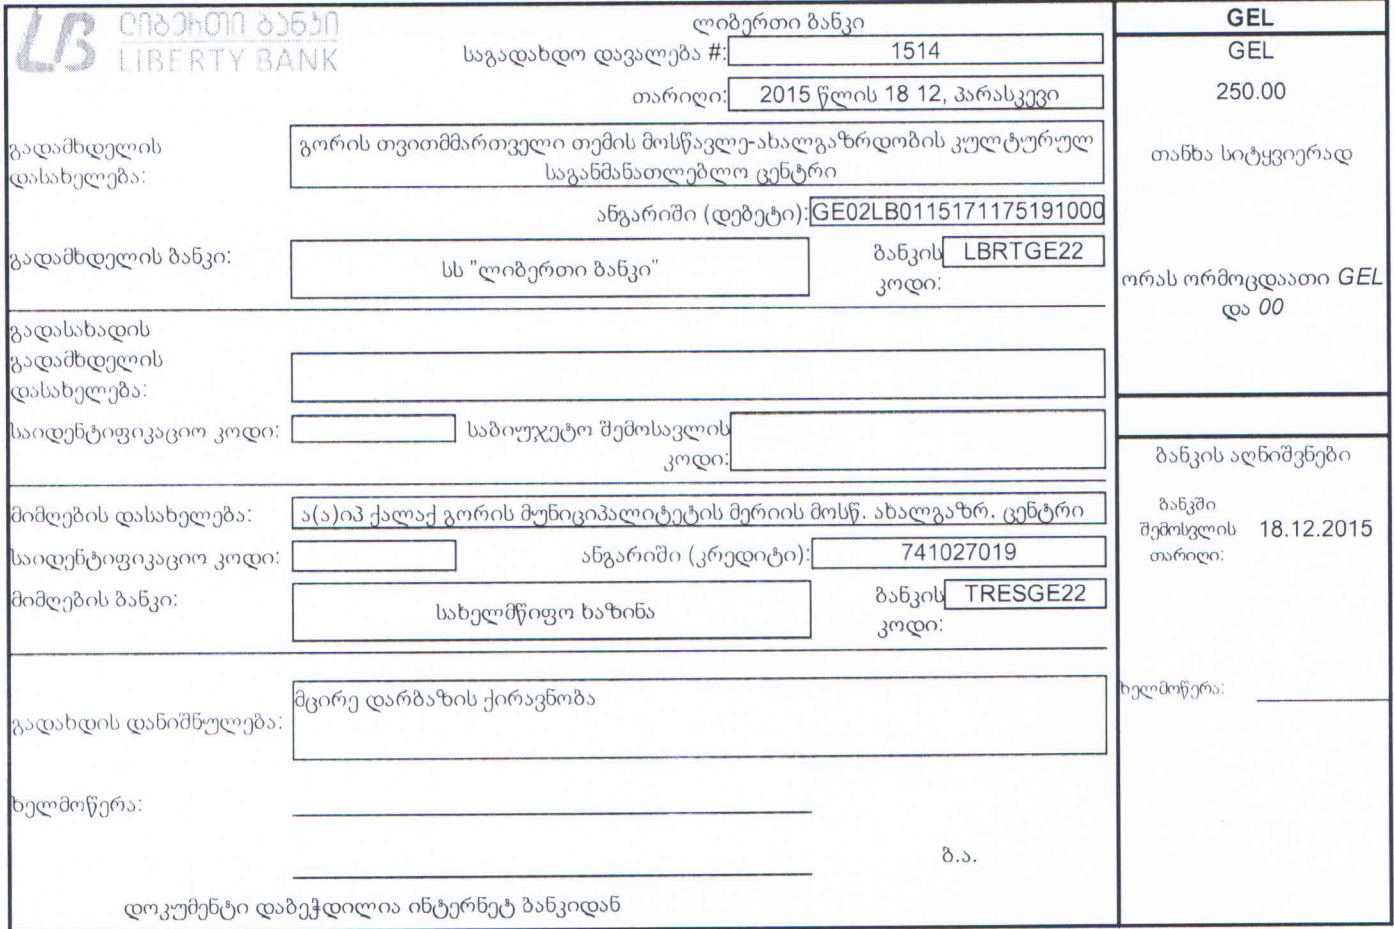 ლიბერთი ბანკი
LIBERTY BANK
ლიბერთი ბანკი
საგადახდო დავალება #: 1514
თარიღი: 2015 წლის 18 12, პარასკევი
გადამხდელის
დასახელება:
გორის თვითმმართველი თემის მოსწავლე-ახალგაზრდობის კულტურულ
საგანმანათლებლო ცენტრი
ანგარიში (დებეტი): GE02LB0115171175191000
გადამხდელის ბანკი: სს "ლიბერთი ბანკი"
ბანკის LBRTGE22
კოდი:
გადასახადის
გადამხდელის
დასახელება:
საიდენტიფიკაციო კოდი: საბიუჯეტო შემოსავლის
კოდი:
მიმღების დასახელება: ა(ა)იპ ქალაქ გორის მუნიციპალიტეტის მერიის მოსწ. ახალგაზრ. ცენტრი
საიდენტიფიკაციო კოდი: ანგარიში (კრედიტი): 741027019
მიმღების ბანკი: სახელმწიფო ხაზინა
ბანკის TRESGE22
კოდი:
გადახდის დანიშნულება: მცირე დარბაზის ქირავნობა
ხელმოწერა:
ბ.ა.
დოკუმენტი დაბეჭდილია ინტერნეტ ბანკიდან
GEL
GEL
250.00
თანხა სიტყვიერად
ორას ორმოცდაათი GEL
და 00
ბანკის აღნიშვნები
ბანკში
შემოსვლის 18.12.2015
თარიღი:
ხელმოწერა: